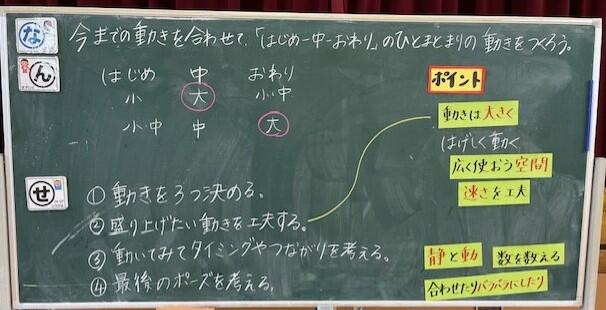 な
今までの動きを合わせて、「はじめ-中-おわり」のひとまとまりの動きをつくろう。
ん
はじめ 中 おわり
小 大 小・中
小・中 中 大
ポイント
動きは大きく
はげしく動く
広く使おう空間
速さを工夫
せ
①動きを3つ決める。
②盛り上げたい動きを工夫する。
③動いてみてタイミングやつながりを考える。
④最後のポーズを考える。
静と動 数を数える
合わせたりバラバラにしたり